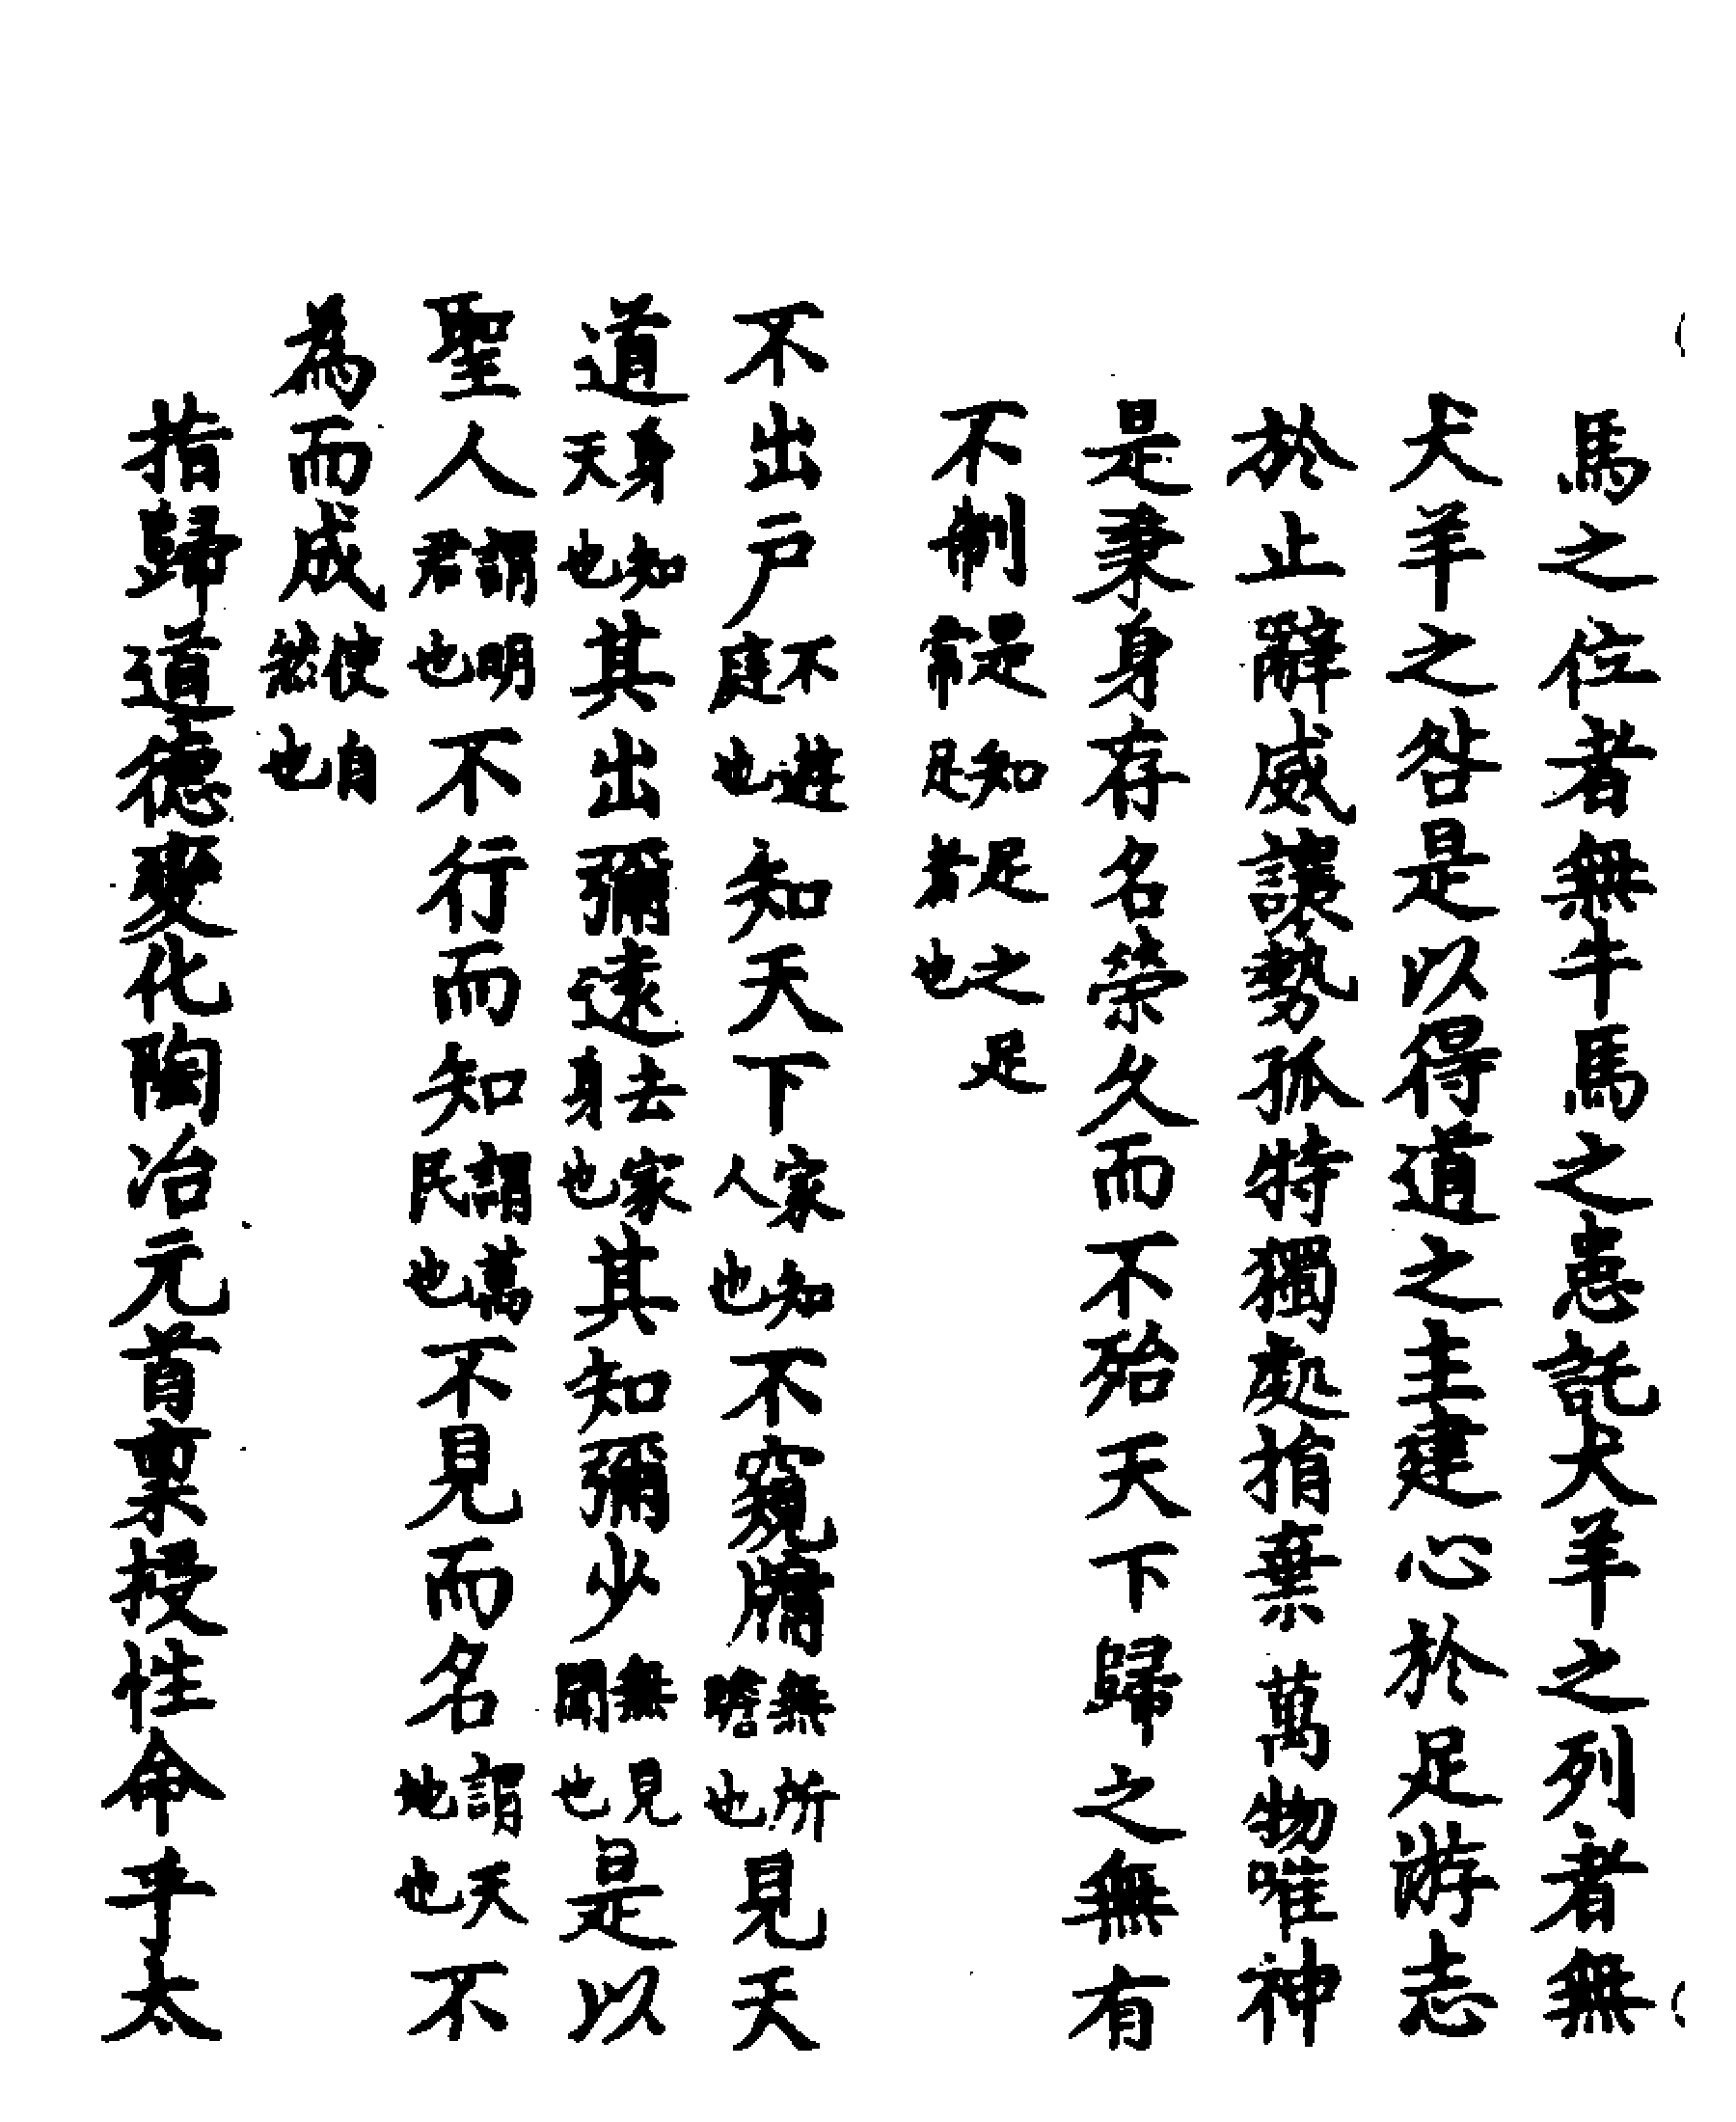 馬之位者無牛馬之患託犬羊之列者無
犬羊之咎是以得道之主建心於足游志
於止辭威讓勢孤特獨處捐棄萬物唯神
是秉身存名榮久而不殆天下歸之無有
不制是知足之足常足者也
不出戶不遊庭也知天下家知人也不窺牖無所瞻也見天
道身知天也其出彌遠去家身也其知彌少無見聞也是以
聖人謂明君也不行而知謂萬民也不見而名謂天地也不
為而成使自然也
指歸道德變化陶冶元首稟授性命乎太